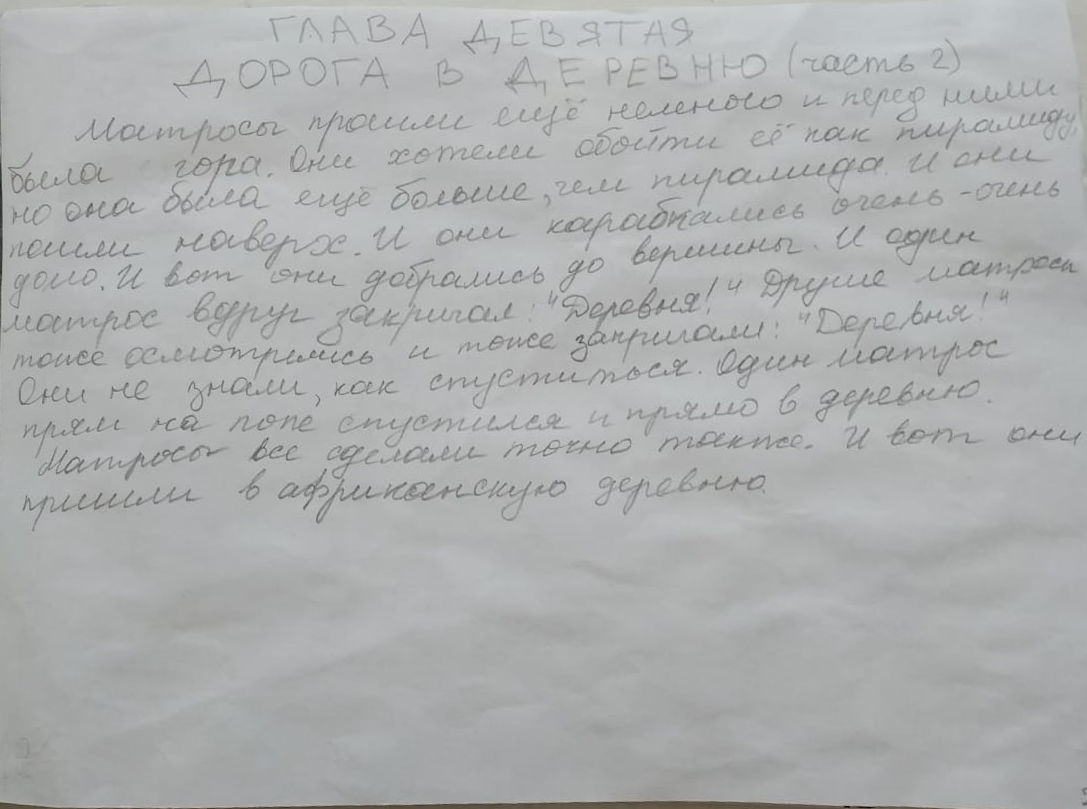 ГЛАВА ДЕВЯТАЯ
ДОРОГА В ДЕРЕВНЮ (часть 2)
Матросы прошли ещё немного и перед ними
была гора. Они хотели обойти её как пирамиду,
но она была ещё больше, чем пирамида. И они
пошли наверх. И они карабкались очень-очень
долго. И вот они добрались до вершины. И один
матрос вдруг закричал: "Деревня!" Другие матросы
тоже осмотрелись и тоже закричали: "Деревня!"
Они не знали, как спуститься. Один матрос
прям на попе спустился и прямо в деревню.
Матросы все сделали точно также. И вот они
пришли в африканскую деревню.